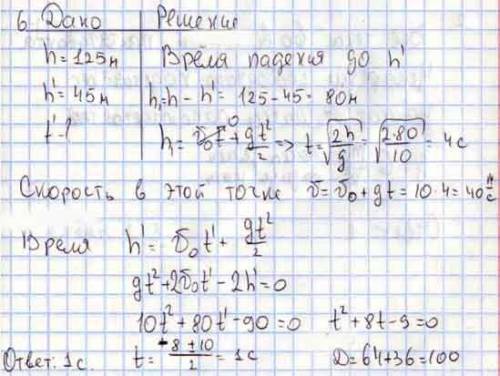 6. Дано Решение
h = 125м Время падения до h'
h' = 45м h₁ = h - h' = 125 - 45 = 80м
t' - ? h₁ = v₀t⁰ + gt²/2 => t = √(2h/g) = √(2·80/10) = 4с
Скорость в этой точке v = v₀ + gt = 10·4 = 40 м/с
Время h' = v₀t' + gt²/2
gt² + 2v₀t' - 2h' = 0
10t² + 80t' - 90 = 0 t² + 8t - 9 = 0
Ответ: 1с. t = (-8 ± 10)/2 = 1с D = 64 + 36 = 100